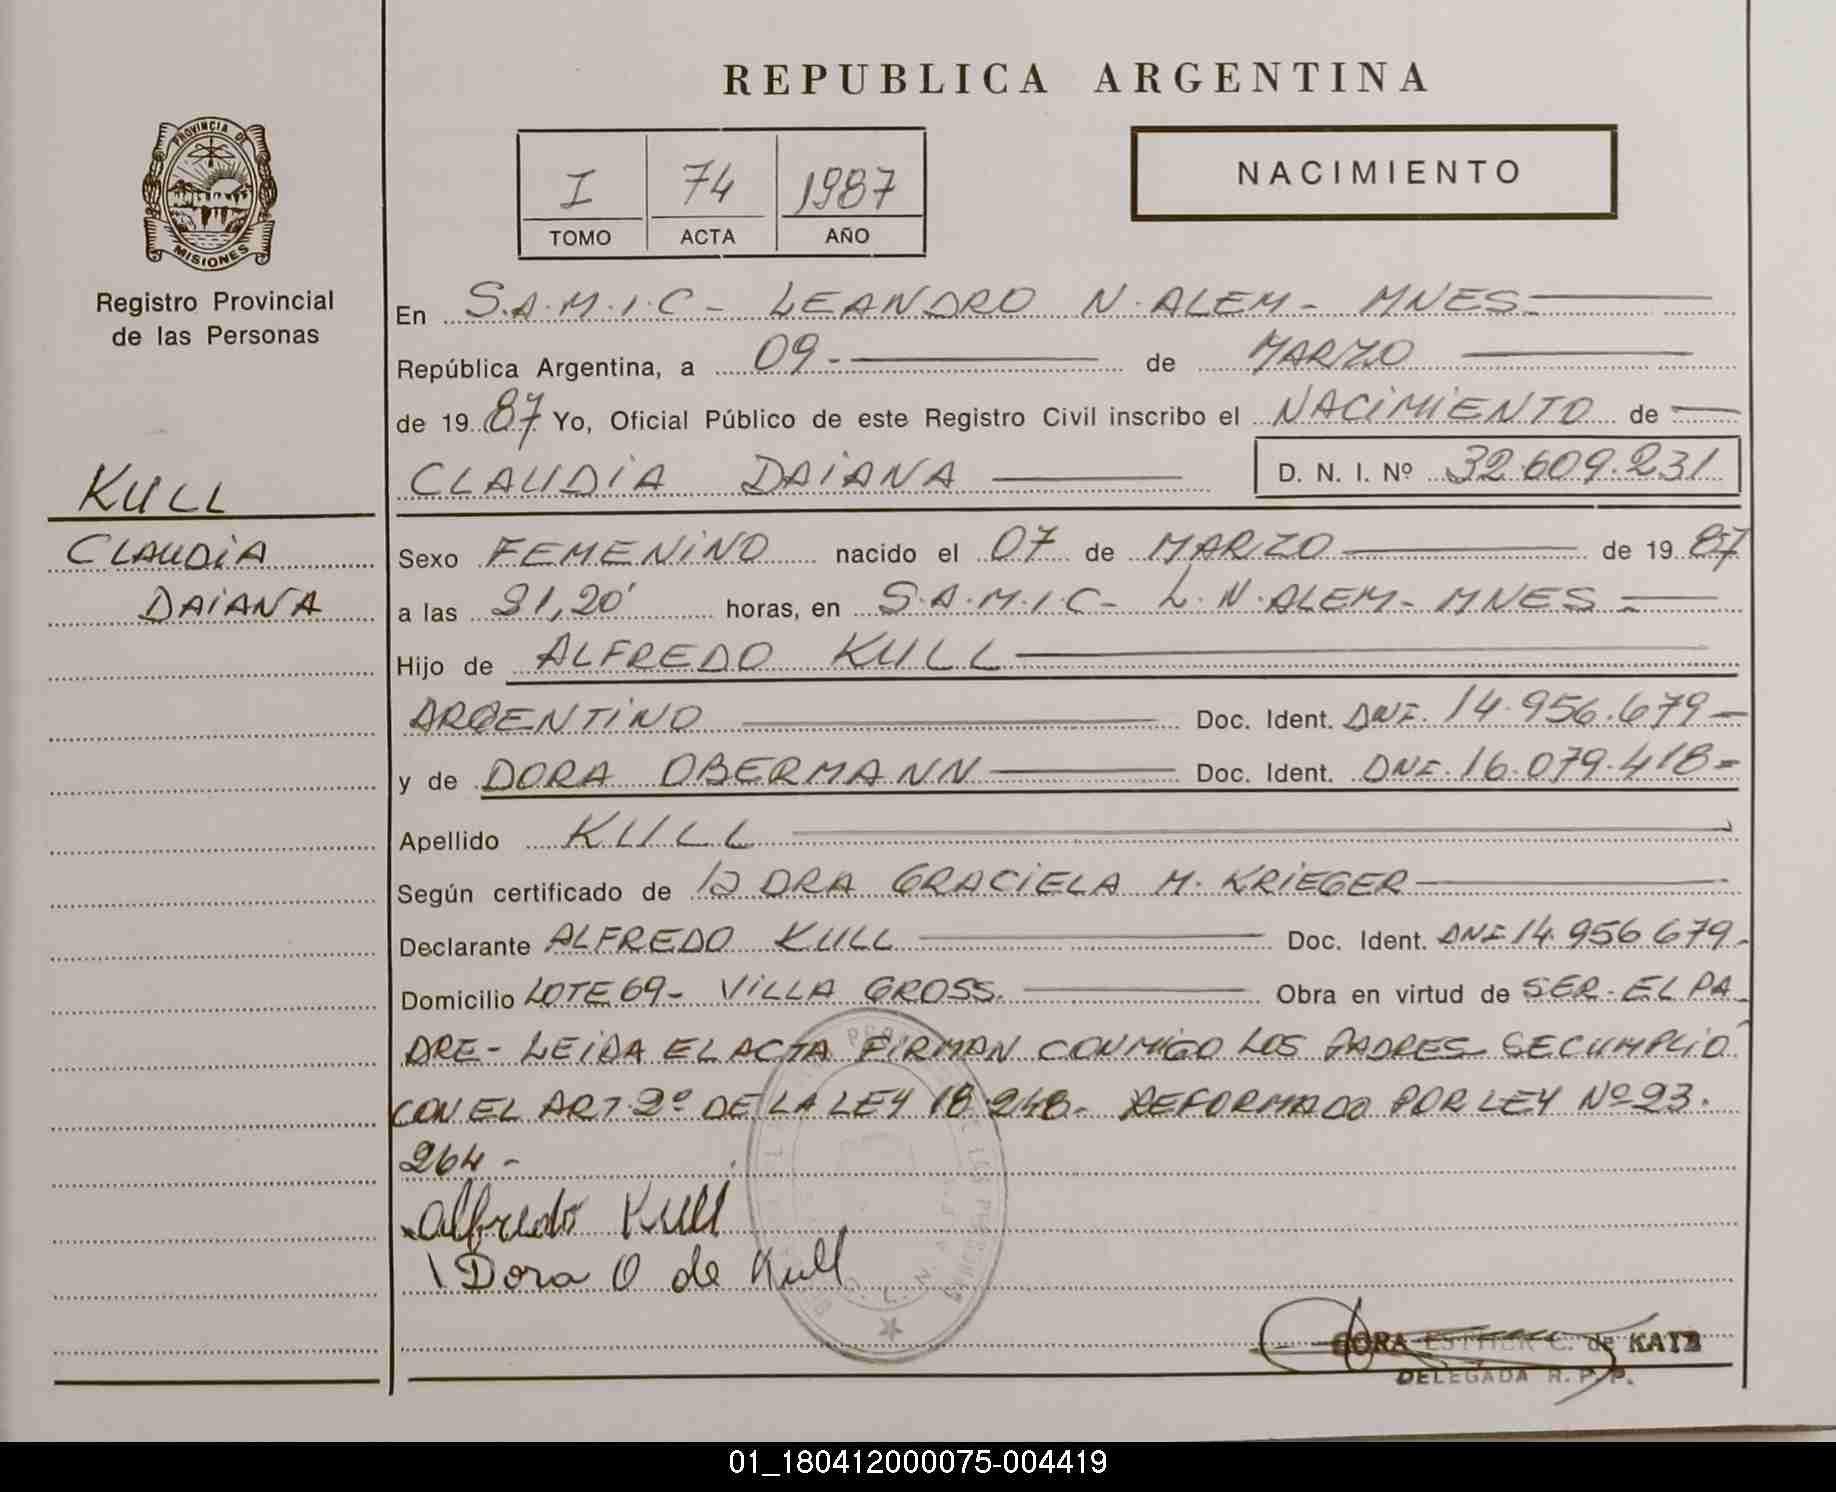 REPUBLICA ARGENTINA
PROVINCIA DE
MISIONES
Registro Provincial
de las Personas
I 74 1987
TOMO ACTA AÑO
NACIMIENTO
KULL
CLAUDIA
DAIANA
En S.A.M.I.C - LEANDRO N. ALEM - MNES.
República Argentina, a 09- de MARZO
de 1987 Yo, Oficial Público de este Registro Civil inscribo el NACIMIENTO de
CLAUDIA DAIANA D. N. I. Nº 32.609.231
Sexo FEMENINO nacido el 07 de MARZO de 1987
a las 21,20' horas, en S.A.M.I.C- L.N.ALEM- MNES-
Hijo de ALFREDO KULL
ARGENTINO Doc. Ident. DNI. 14.956.679-
y de DORA OBERMANN Doc. Ident. DNI. 16.079.418=
Apellido KULL
Según certificado de la DRA GRACIELA M. KRIEGER
Declarante ALFREDO KULL Doc. Ident. DNI 14.956 679.
Domicilio LOTE 69- VILLA GROSS. Obra en virtud de SER- EL PA
DRE- LEIDA EL ACTA FIRMAN CONMIGO LOS PADRES SE CUMPLIÓ
CON EL ART. 2º DE LA LEY 18.248- REFORMADO POR LEY Nº 23.
264-
Alfredo Kull
Dora O de Kull
DORA ESTHER C. de KATZ
DELEGADA R. P. P.
01_180412000075-004419